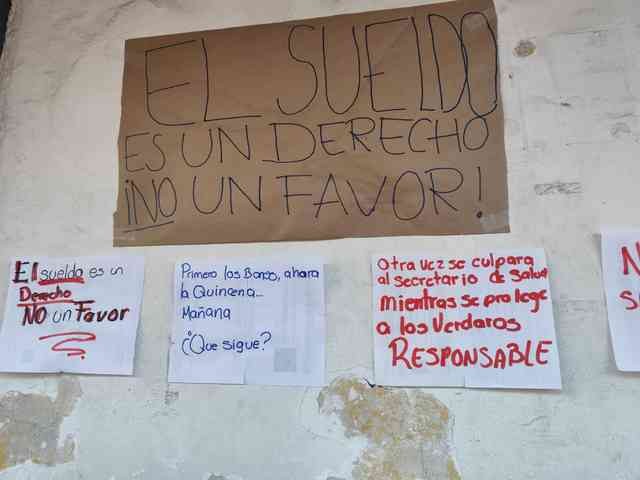 EL SUELDO
ES UN DERECHO
¡NO UN FAVOR!
El sueldo es un
Derecho
NO un Favor
Primero los Bonos, ahora
la Quincena...
Mañana
¿Que sigue?
Otra vez se culpara
al secretario de Salud
Mientras se protege
a los Verdaros
RESPONSABLE
N
S